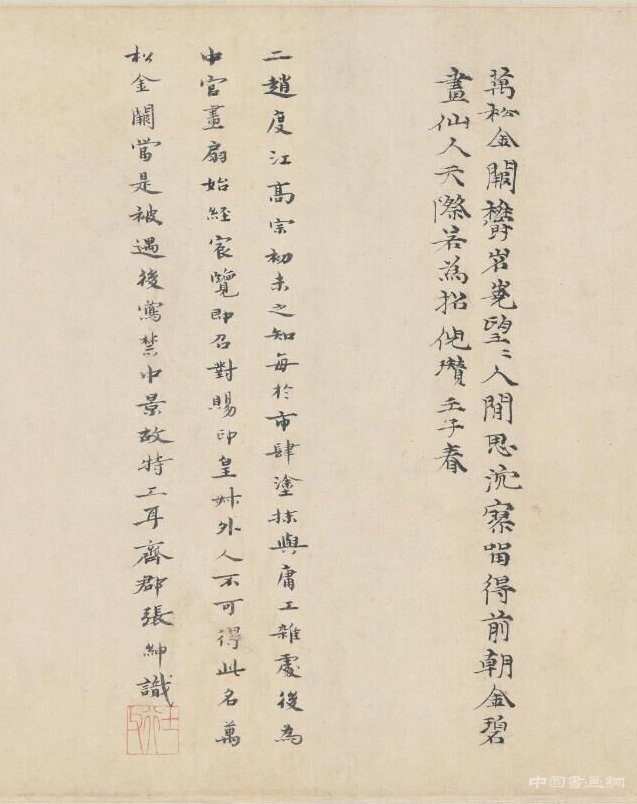 萬松金闕鬱岧嶤望〻人間思泬寥留得前朝金碧
畫仙人天際若為招倪瓚壬子春
二趙度江高宗初未之知每於市肆塗抹與庸工雜處後為
中官畫扇始經宸覽即召對賜印皇叔外人不可得此名萬
松金闕當是被遇後寫禁中景故特工耳齊郡張紳識
中国書画網